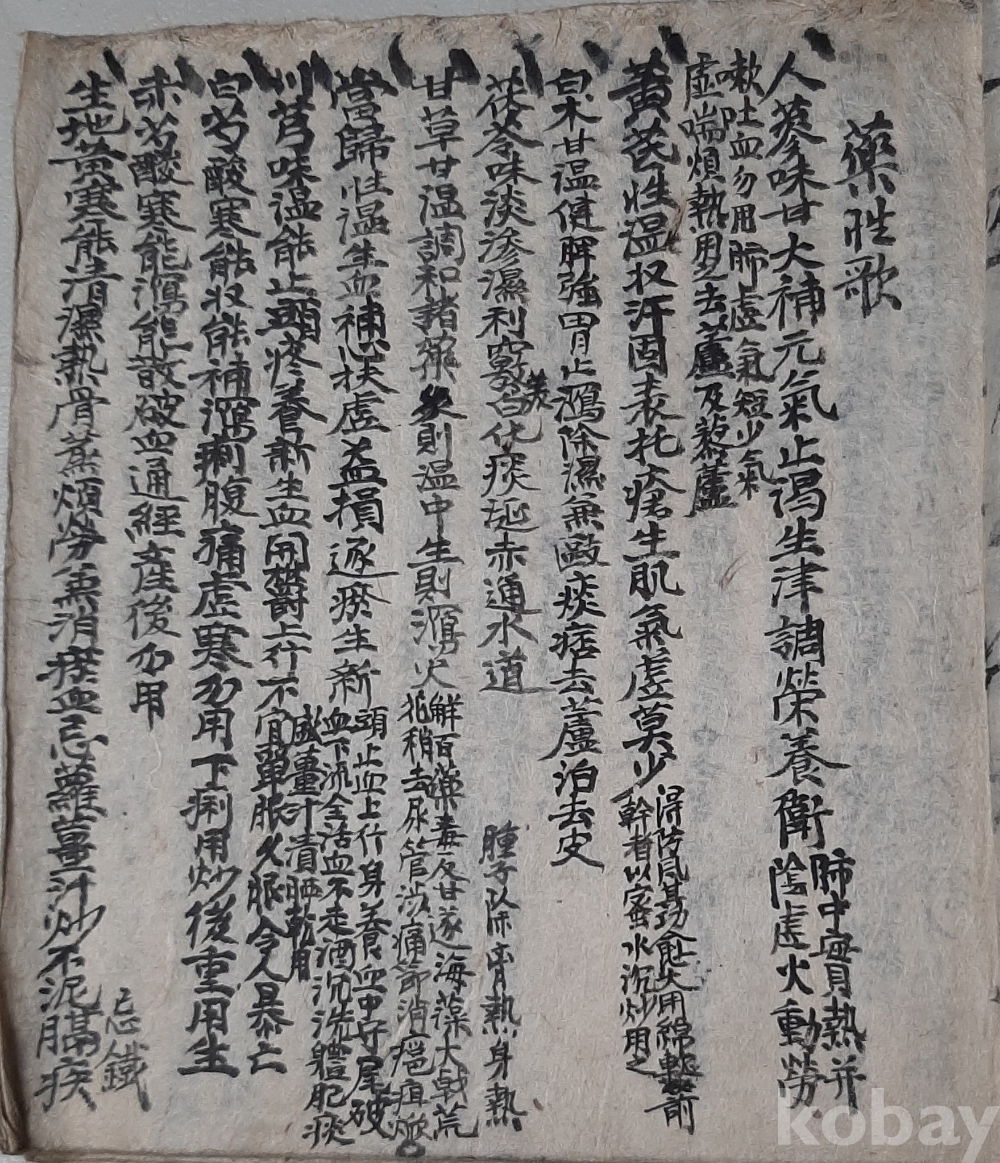 藥性歌
人蔘味甘大補元氣止渴生津調榮養衛肺中實熱并
陰虛火動勞
嗽吐血勿用肺虛氣短少氣
虛喘煩熱用之去蘆及藜蘆
黃芪性溫收汗固表托瘡生肌氣虛莫少得防風其功愈大用綿軟箭
幹者以蜜水沉炒用之
白朮甘溫健脾強胃止瀉除濕兼敺痰痞去蘆泊去皮
茯苓味淡滲濕利竅白化痰涎赤通水道
甘草甘溫調和諸藥炙則溫中生則瀉火解百藥毒反甘遂海藻大戟芫
花稍去尿管澁痛節消癰疽
當歸性溫生血補心扶虛益損逐瘀生新頭止血上行身養血中守尾破
血下流全活血不走酒沉洗體肥痰
盛薑汁漬晒乾用
川芎味溫能止頭疼養新生血開鬱上行不宜單服久服令人暴亡
白芍酸寒能收能補瀉痢腹痛虛寒勿用下痢用炒後重用生
赤芍酸寒能瀉能散破血通經產後勿用
生地黃寒能清濕熱骨蒸煩勞兼消瘀血忌蘿薑汁炒不泥膈痰
忌鐵
kobay